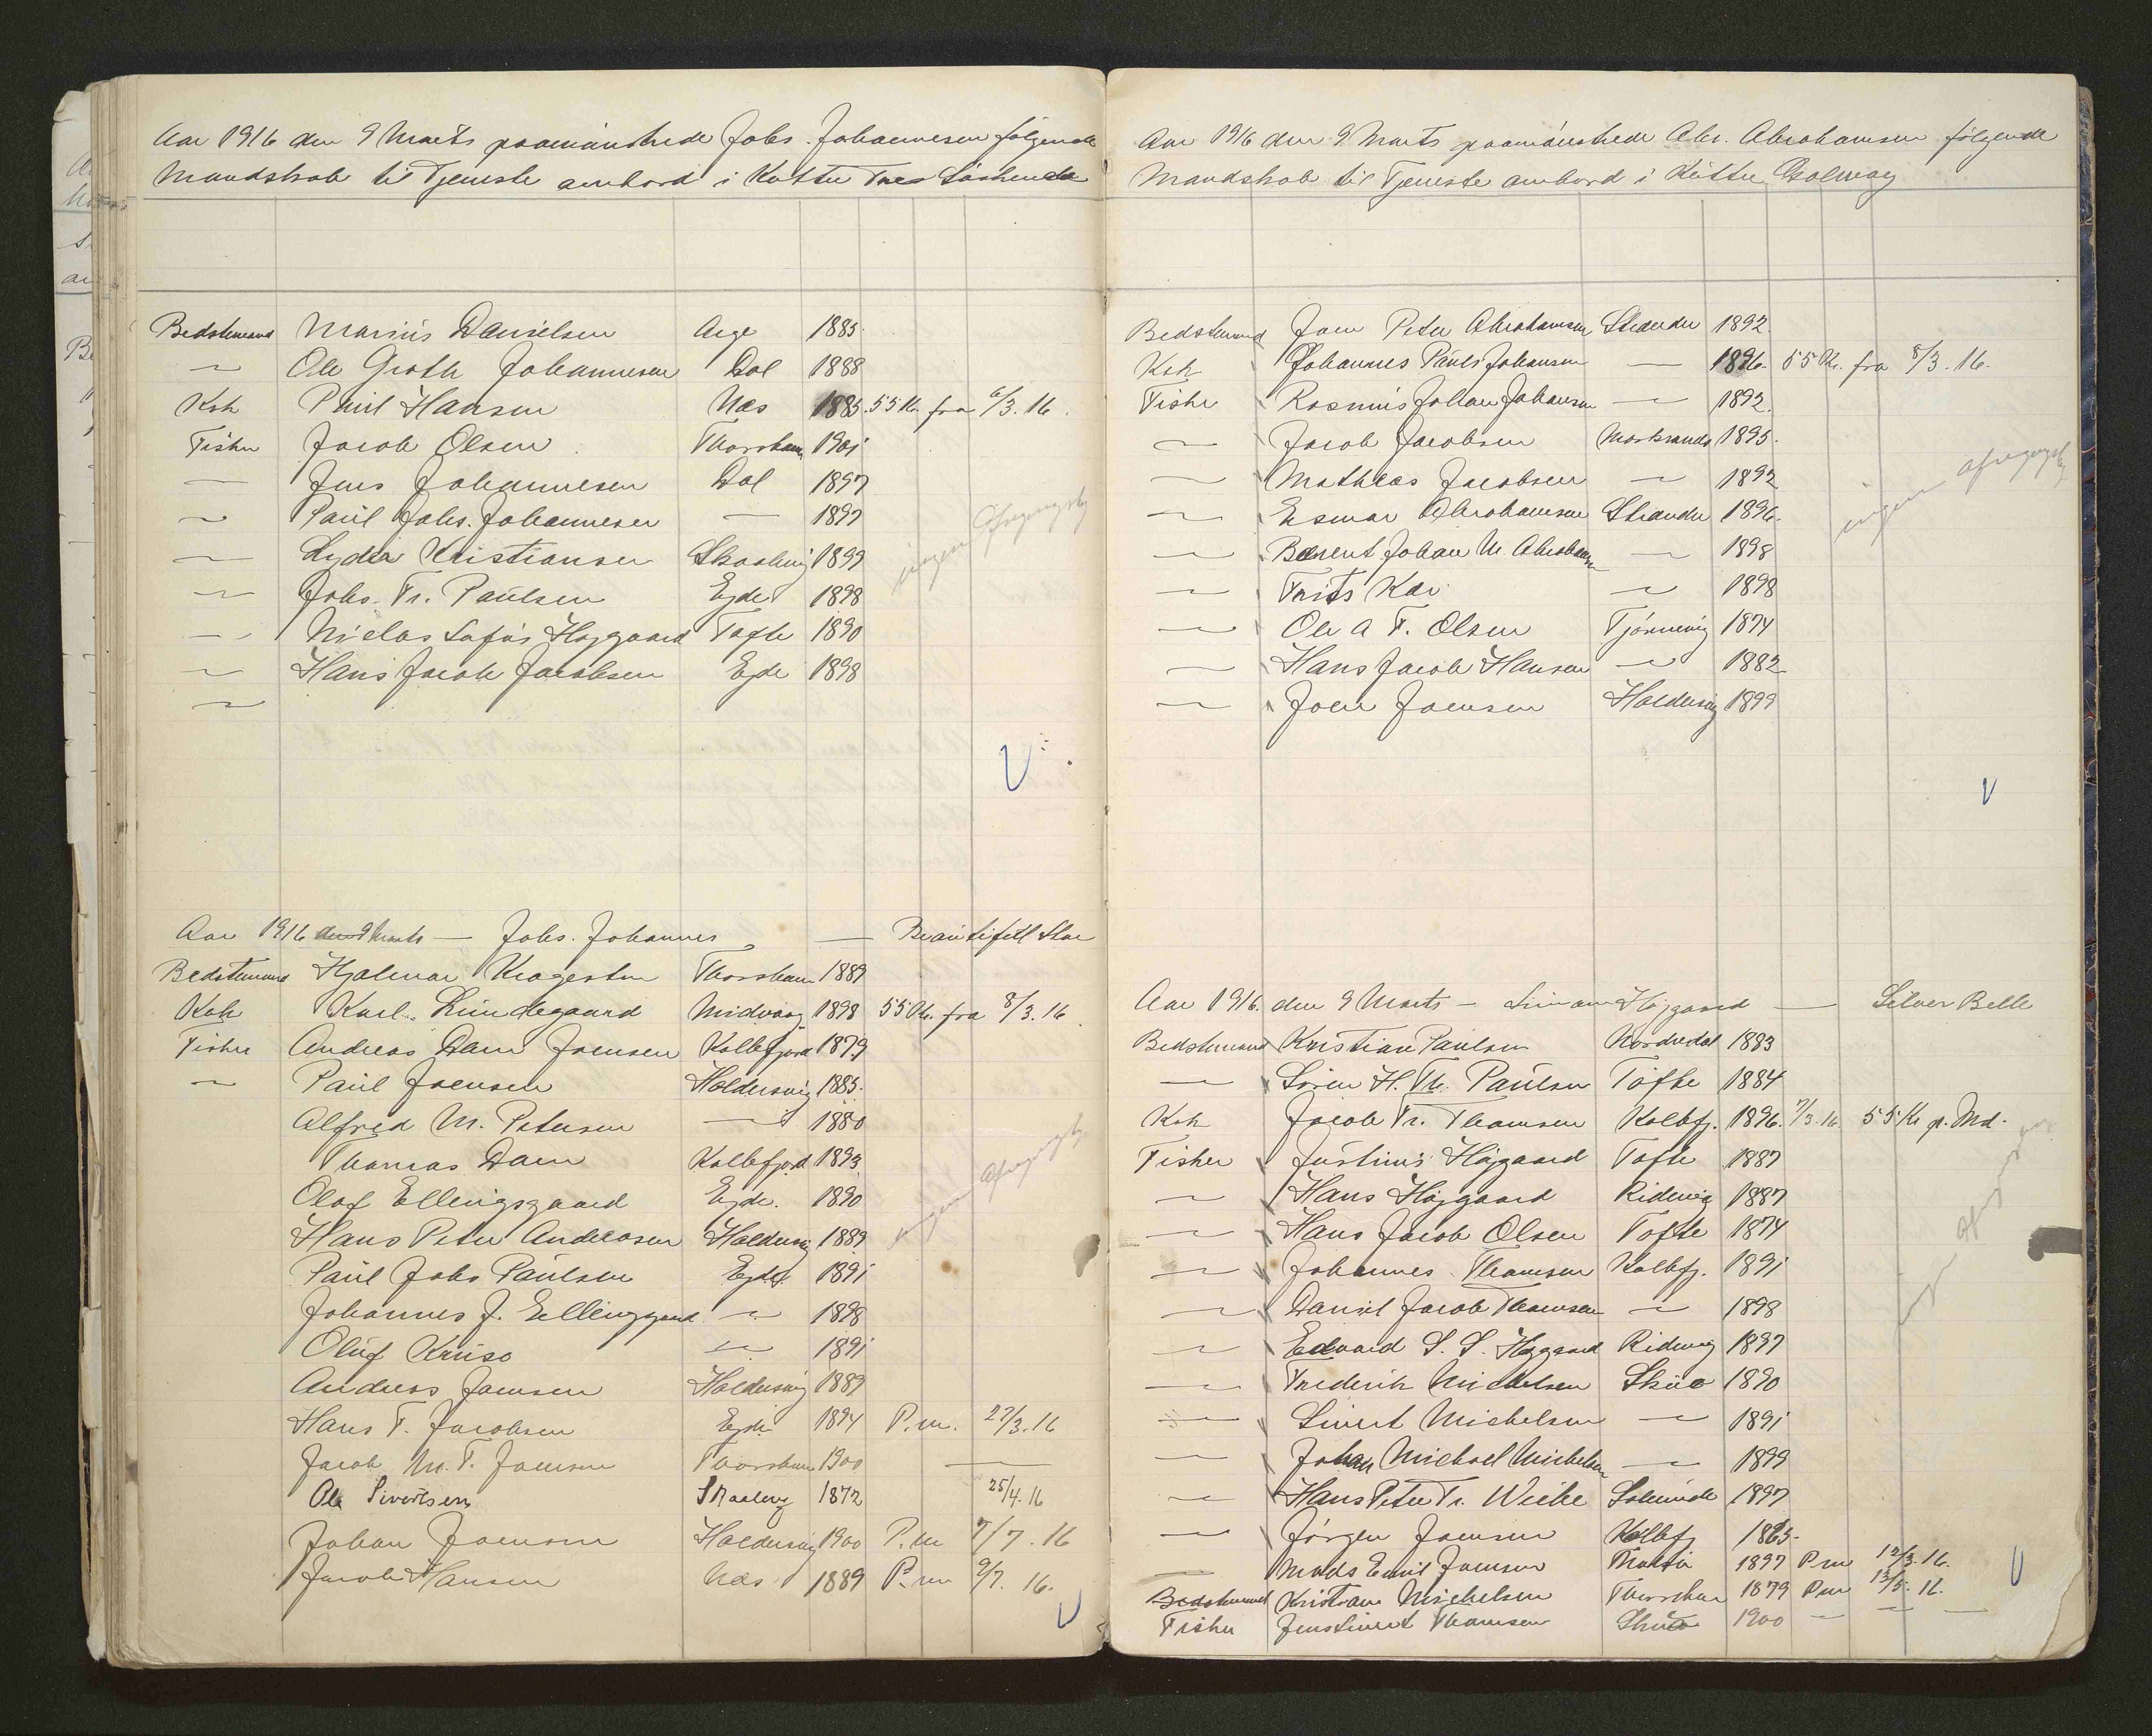 Aar 1916 den 9 Marts paamönstrede Johs. Johannesen følgende
Mandskab til Tjeneste ambord i Kutter Tres Söskende
Bedstemand Marius Danielsen Arge 1885.
— Ole Groth Johannesen Dal 1888
Kok Poul Hansen Næs 1885. 55 Kr. fra 6/3. 16.
Fisker Jacob Olsen Thorshavn 1901
— Jens Johannesen Dal 1897
— Paul Johs. Johannesen — 1897
— Kristiansen Skaalevig 1899
— Johs. Fr. Paulsen Ejde 1898
— Niclas Højgaard Tofte 1890
— Hans Jacob Jacobsen Ejde 1898
—
ingen Afregningsbog
V
Aar 1916 den 9 Marts — Johs. Johannes — Beautifull Star
Bedstemand Hjalmar Kragesten Thorshavn 1889
Kok Karl Lündegaard Midvaag 1898 55 Kr. fra 8/3. 16.
Fisker Andreas Dam Joensen Kollefjord 1879
— Paul Joensen Haldersvig 1885.
Alfred M. Petersen — 1880
Thomas Dam Kollefjord 1893
Olaf Ellingsgaard Ejde. 1890
Hans Peter Andreasen Haldersvig 1889
Paul Johs Paulsen Ejde 1891
Johannes J. Ellingsgaard — 1898
Oluf Kruse — 1891
Andreas Joensen Haldersvig 1889
Hans T. Jacobsen Ejde 1894 P.m. 27/3. 16
Jacob M. T. Joensen Thorshavn 1900 —
Ole Sivertsen Skaalevg 1872 25/4. 16
Johan Joensen Haldersvig 1900 P.m 7/7. 16
Jacob Hansen Næs 1889 P.m 9/7. 16.
ingen Afregningsbg
V
Aar 1916 den 9 Marts paamönstrede Abr. Abrahamsen følgende
Mandskab til Tjeneste ambord i Kutter Solway
Bedstemand Joen Peter Abrahamsen Strænder 1892.
Kok Johannes Pauli Johansen — 1896. 55 Kr. fra 8/3. 16.
Fisker Rasmus Johan Johansen — 1892.
— Jacob Jacobsen Morksranes 1895.
— Mathias Jacobsen — 1892
— Esmar Abrahamsen Strander 1896.
— Berent Johan M. Abrahamsen — 1898
— Frits Kær — 1898
— Ole A F. Olsen Tjørnevig 1874
— Hans Jacob Hansen — 1882
— Joen Joensen Haldersvig 1899
ingen Afregningsbg
V
Aar 1916. den 9 Marts — Simon Højgaard — Silver Belle
Bedstemand Kristian Paulsen Nordredal 1883
— Sören H. Th. Paulsen Tofte 1884
Kok Jacob Fr. Thomsen Kolbfj. 1896. 7/3. 16. 55 Kr p. Md.
Fisker Justinus Højgaard Tofte 1887
— Hans Højgaard Ridevig 1887
— Hans Jacob Olsen Tofte 1874
— Johannes Thomsen Kolbfj. 1891
— Daniel Jacob Thomsen — 1898
— Edvard S. S. Højgaard Ridevig 1897
— Frederik Michelsen Skuø 1890
— Sivert Michelsen — 1891
— Johan Michael Michelsen — 1899
— Hans Peter Fr. Weihe Solmunde 1897
— Jörgen Joensen Kolbfj 1865.
— Mads Emil Joensen 1897 Pm 12/3. 16.
Bedstemand Kristian Michelsen Thorshavn 1879 Pm 13/5. 16.
Fisker Jens Sivert Thomsen Skuø 1900 — — —
V